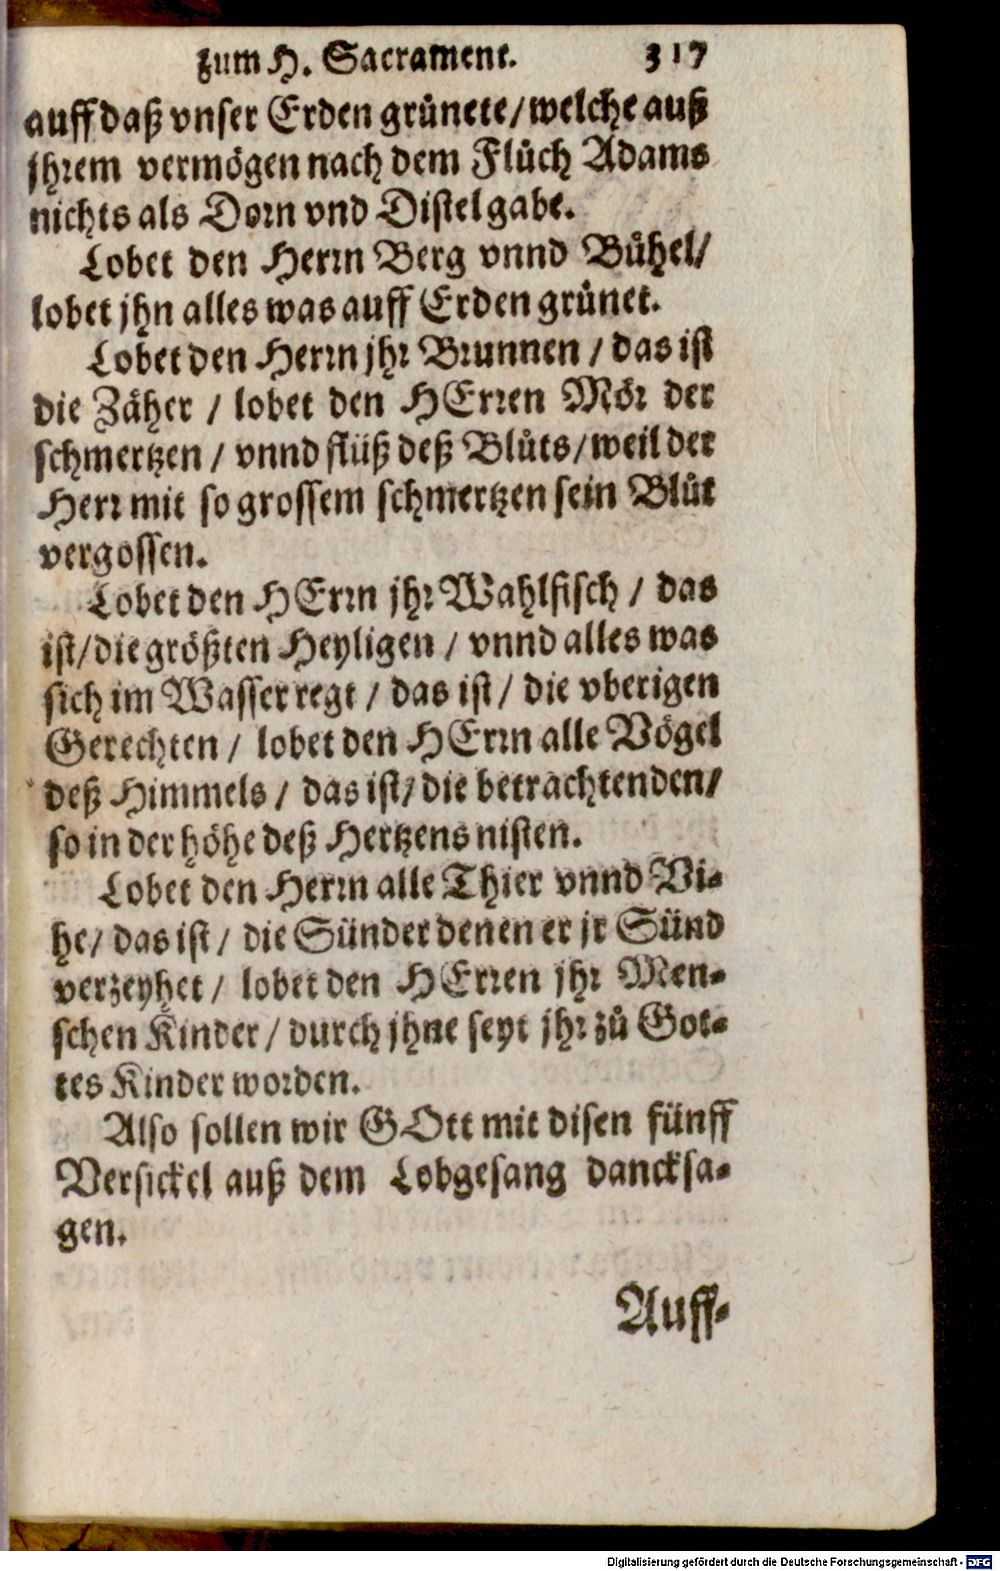 zum H. Sacrament. 317
auff daß vnser Erden grůnete/welche auß
jhrem vermögen nach dem Flůch Adams
nichts als Dorn vnd Distel gabe.
Lobet den Herrn Berg vnnd Bůhel/
lobet jhn alles was auff Erden grůnet.
Lobet den Herrn jhr Brunnen / das ist
die Zäher / lobet den HErren Mör der
schmertzen / vnnd flüß deß Blůts/weil der
Herr mit so grossem schmertzen sein Blůt
vergossen.
Lobet den HErrn jhr Wahlfisch / das
ist/die größten Heyligen / vnnd alles was
sich im Wasser regt / das ist / die vberigen
Gerechten / lobet den HErrn alle Vögel
deß Himmels / das ist/die betrachtenden/
so in der höhe deß Hertzens nisten.
Lobet den Herrn alle Thier vnnd Vi-
he/ das ist / die Sünder denen er jr Sünd
verzeyhet / lobet den HErren jhr Men-
schen Kinder / durch jhne seyt jhr zů Got-
tes Kinder worden.
Also sollen wir GOtt mit disen fünff
Versickel auß dem Lobgesang dancksa-
gen.
Auff-
Digitalisierung gefördert durch die Deutsche Forschungsgemeinschaft - DFG